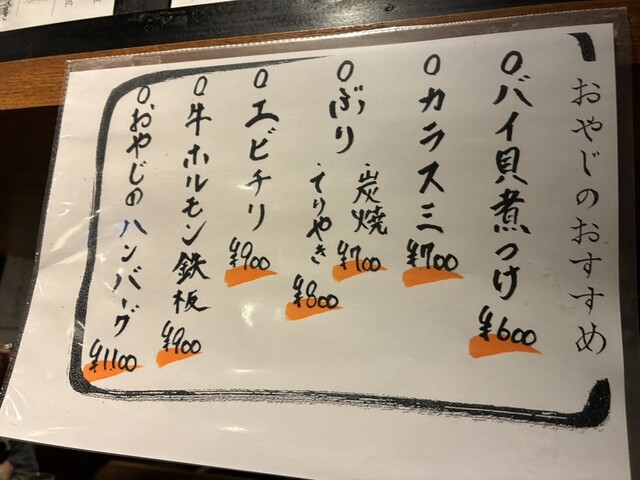 おやじのおすすめ
○バイ貝煮つけ
¥600
○カラスミ
¥700
○ぶり
・炭焼
¥700
・てりやき
¥800
○エビチリ
¥900
○牛ホルモン鉄板
¥900
○おやじのハンバーグ
¥1,100